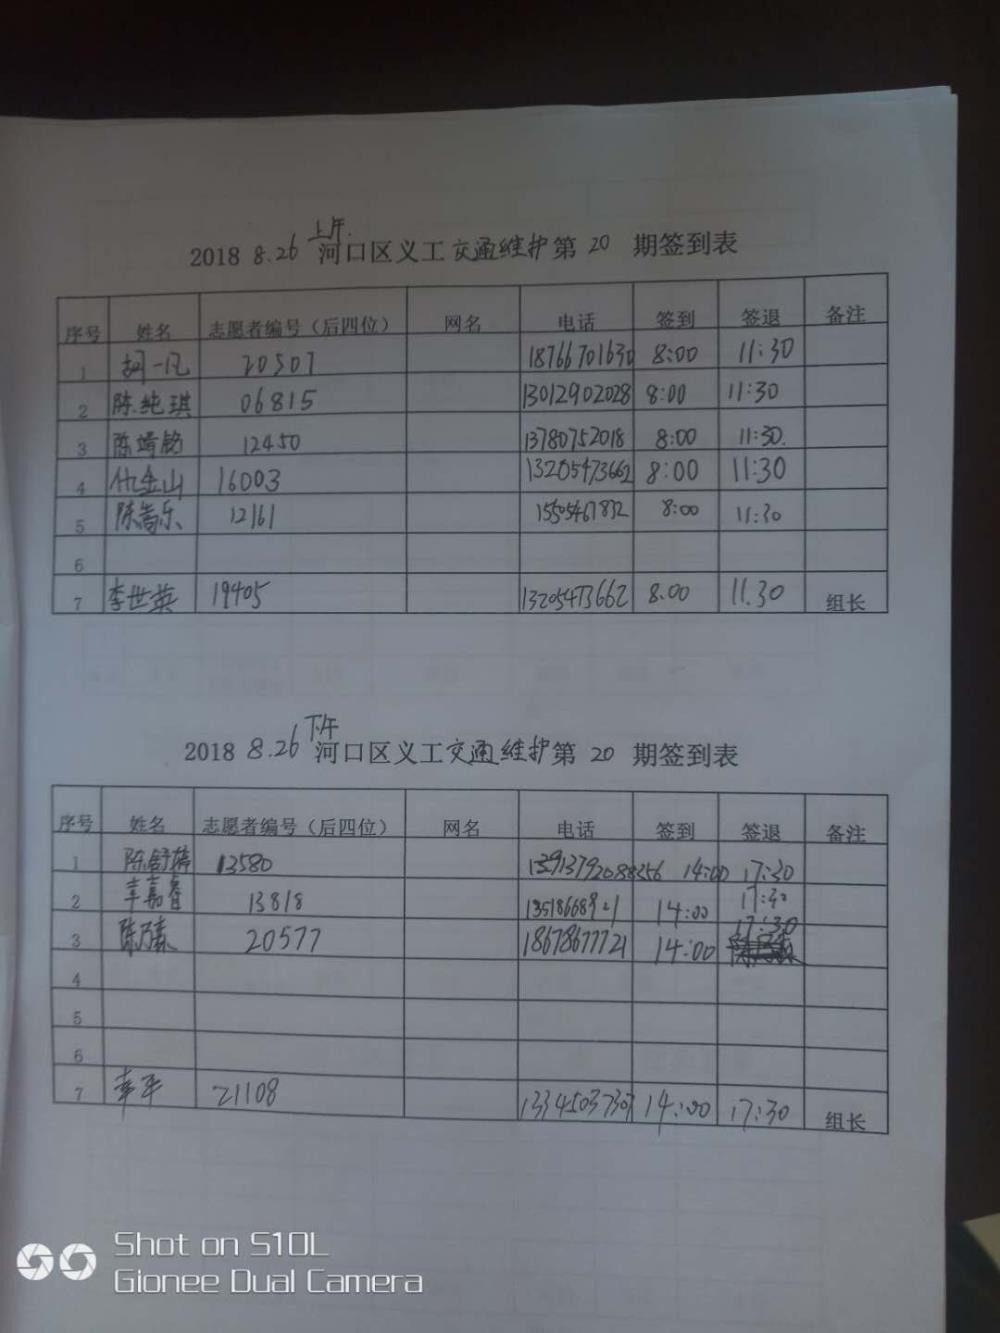 上午
2018 8.26 河口区义工交通维护第 20 期签到表
序号 姓名 志愿者编号（后四位） 网名 电话 签到 签退 备注
1 胡一凡 20507 18766701630 8:00 11:30
2 陈纯琪 06815 13012902028 8:00 11:30
3 陈靖铭 12450 13780752018 8:00 11:30.
4 仇金山 16003 13205473662 8:00 11:30
5 陈嵩乐 12161 8:00 11:30
6
7 李世英 19405 13205473662 8.00 11.30 组长
下午
2018 8.26 河口区义工交通维护第 20 期签到表
序号 姓名 志愿者编号（后四位） 网名 电话 签到 签退 备注
1 13580 14:00 17:30
2 13818 14:00 17:30
3 20577 18678677721 14:00 17:30
4
5
6
7 21108 13345037307 14:00 17:30 组长
Shot on S10L
Gionee Dual Camera